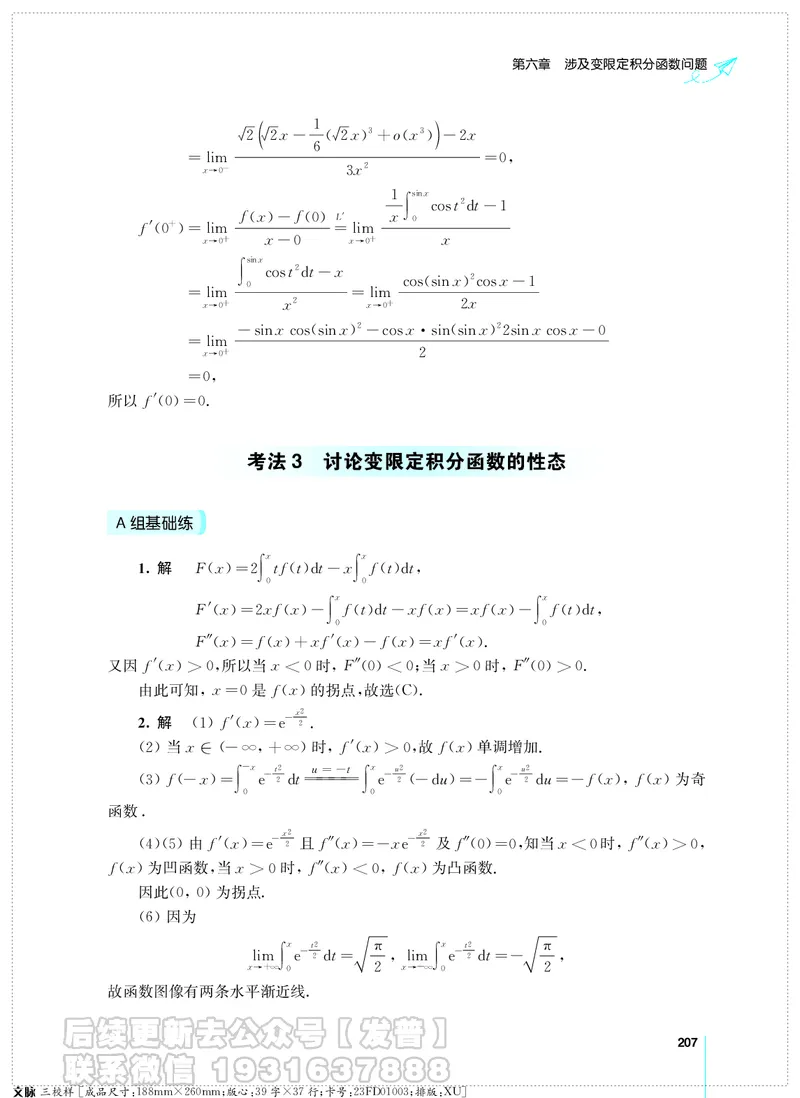 第六章 涉及变限定积分函数问题
$=\lim\limits_{x\to 0^-}\dfrac{\sqrt{2}\left(\sqrt{2}x-\dfrac{1}{6}(\sqrt{2}x)^3+o(x^3)\right)-2x}{3x^2}=0,$
$f'(0^+)=\lim\limits_{x\to 0^+}\dfrac{f(x)-f(0)}{x-0}\overset{L'}{=}\lim\limits_{x\to 0^+}\dfrac{\dfrac{1}{x}\int_0^{\sin x}\cos t^2\mathrm{d}t-1}{x}$
$=\lim\limits_{x\to 0^+}\dfrac{\int_0^{\sin x}\cos t^2\mathrm{d}t-x}{x^2}=\lim\limits_{x\to 0^+}\dfrac{\cos(\sin x)^2\cos x-1}{2x}$
$=\lim\limits_{x\to 0^+}\dfrac{-\sin x\cos(\sin x)^2-\cos x\cdot\sin(\sin x)^2 2\sin x\cos x-0}{2}$
$=0,$
所以 $f'(0)=0.$
考法3 讨论变限定积分函数的性态
A组基础练
1. 解 $F(x)=2\int_0^x tf(t)\mathrm{d}t-x\int_0^x f(t)\mathrm{d}t,$
$F'(x)=2xf(x)-\int_0^x f(t)\mathrm{d}t-xf(x)=xf(x)-\int_0^x f(t)\mathrm{d}t,$
$F''(x)=f(x)+xf'(x)-f(x)=xf'(x).$
又因 $f'(x)>0$,所以当 $x<0$ 时, $F''(0)<0$;当 $x>0$ 时, $F''(0)>0.$
由此可知, $x=0$ 是 $f(x)$ 的拐点,故选(C).
2. 解 (1) $f'(x)=\mathrm{e}^{-\frac{x^2}{2}}.$
(2) 当 $x\in(-\infty,+\infty)$ 时, $f'(x)>0$,故 $f(x)$ 单调增加.
(3) $f(-x)=\int_0^{-x}\mathrm{e}^{-\frac{t^2}{2}}\mathrm{d}t\overset{u=-t}{=\!=\!=}\int_0^x\mathrm{e}^{-\frac{u^2}{2}}(-\mathrm{d}u)=-\int_0^x\mathrm{e}^{-\frac{u^2}{2}}\mathrm{d}u=-f(x)$, $f(x)$ 为奇
函数.
(4)(5) 由 $f'(x)=\mathrm{e}^{-\frac{x^2}{2}}$ 且 $f''(x)=-x\mathrm{e}^{-\frac{x^2}{2}}$ 及 $f''(0)=0$,知当 $x<0$ 时, $f''(x)>0$,
$f(x)$ 为凹函数,当 $x>0$ 时, $f''(x)<0$, $f(x)$ 为凸函数.
因此(0, 0) 为拐点.
(6) 因为
$\lim\limits_{x\to+\infty}\int_0^x\mathrm{e}^{-\frac{t^2}{2}}\mathrm{d}t=\sqrt{\dfrac{\pi}{2}},\ \lim\limits_{x\to-\infty}\int_0^x\mathrm{e}^{-\frac{t^2}{2}}\mathrm{d}t=-\sqrt{\dfrac{\pi}{2}},$
故函数图像有两条水平渐近线.
后续更新去公众号【发普】
207
联系微信 1931637888
文脉 三校样[成品尺寸:188mm×260mm;版心:39字×37行;卡号:23FD01003;排版:XU]